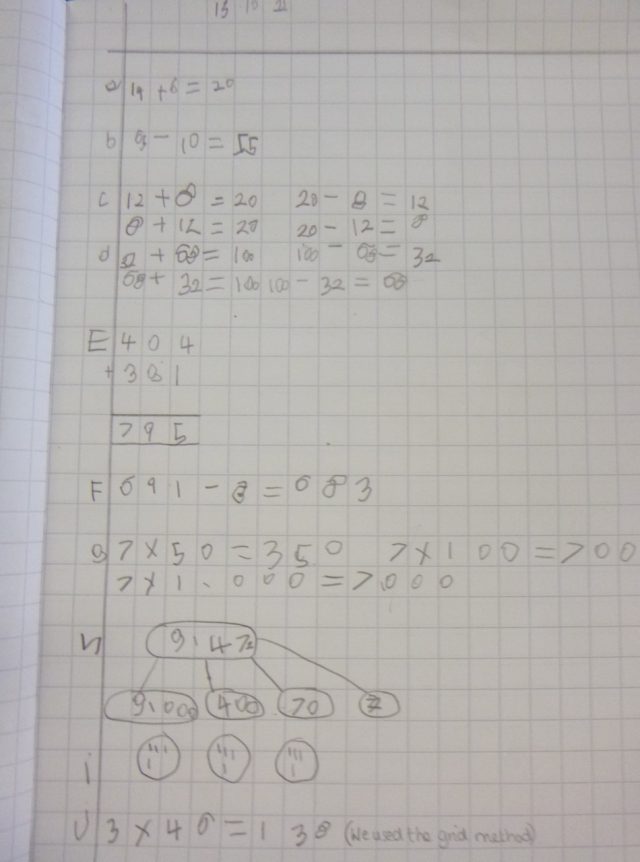 a 14 + 6 = 20
b - 10 = 55
c 12 + 8 = 20 20 - 8 = 12
8 + 12 = 20 20 - 12 = 8
d 32 + 68 = 100 100 - 68 = 32
68 + 32 = 100 100 - 32 = 68
E 4 0 4
+ 3 9 1
7 9 5
F 6 9 1 - 8 = 6 8 3
g 7 x 5 0 = 3 5 0 7 x 1 0 0 = 7 0 0
7 x 1.0 0 0 = 7.0 0 0
h
9.000 400 70
i
j 3 x 4 6 = 1 3 8 (We used the grid method)